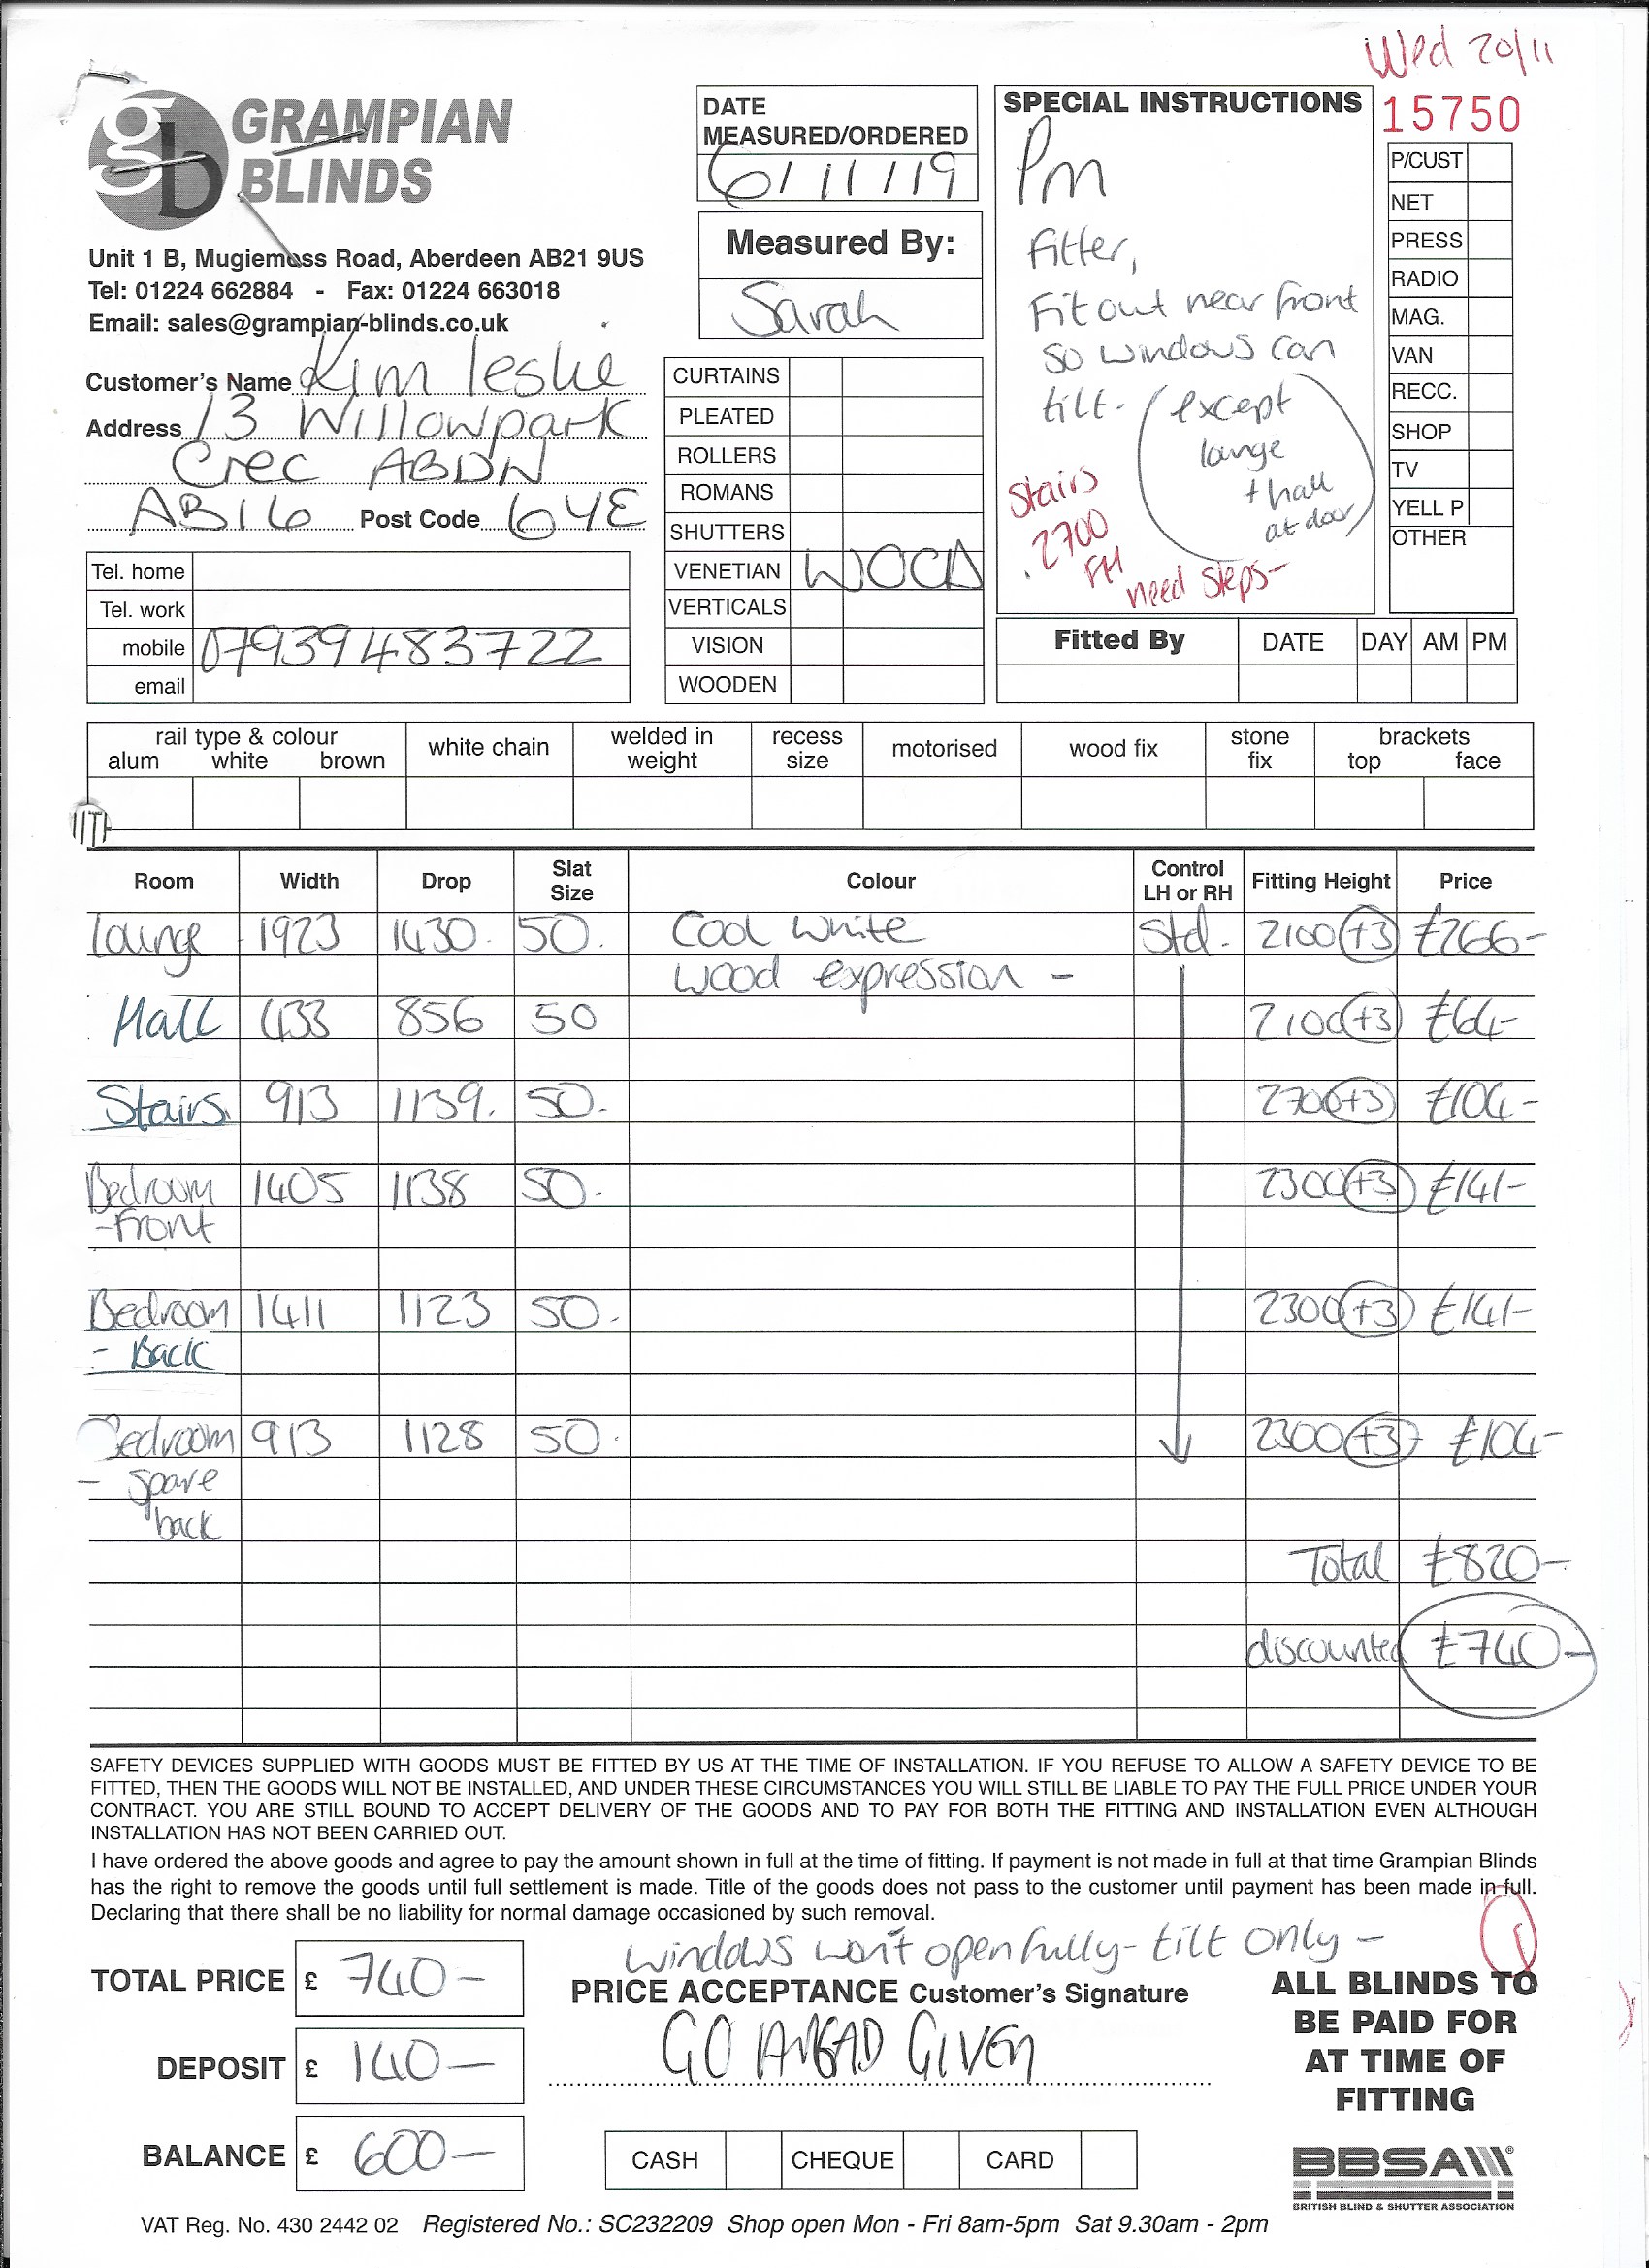 Wed 20/11
GRAMPIAN
BLINDS
gb
Unit 1 B, Mugiemoss Road, Aberdeen AB21 9US
Tel: 01224 662884 - Fax: 01224 663018
Email: sales@grampian-blinds.co.uk
Customer's Name Kim Leslie
Address 13 Willowpark
Crec ABDN
AB16 Post Code 6YE
Tel. home
Tel. work
mobile 07939483722
email
DATE
MEASURED/ORDERED
6/11/19
Measured By:
Sarah
CURTAINS
PLEATED
ROLLERS
ROMANS
SHUTTERS
VENETIAN WOOD
VERTICALS
VISION
WOODEN
SPECIAL INSTRUCTIONS
Pm
Fitter,
Fit out near front
so windows can
tilt. (except
lounge
+ hall
at door)
Stairs
2700
FH
need steps-
15750
P/CUST
NET
PRESS
RADIO
MAG.
VAN
RECC.
SHOP
TV
YELL P
OTHER
Fitted By DATE DAY AM PM
rail type & colour white chain welded in weight recess size motorised wood fix stone fix brackets
alum white brown top face
Room Width Drop Slat Size Colour Control LH or RH Fitting Height Price
Lounge 1923 1430. 50. Cool white Std. 2100 +3 £266-
wood expression -
Hall 433 856 50 2100 +3 £64-
Stairs. 913 1139. 50. 2700 +3 £104-
Bedroom 1405 1138 50. 2300 +3 £141-
-Front
Bedroom 1411 1123 50. 2300 +3 £141-
- Back
Bedroom 913 1128 50. 2300 +3 £104-
- Spare
back
Total £820-
discounted £740-
SAFETY DEVICES SUPPLIED WITH GOODS MUST BE FITTED BY US AT THE TIME OF INSTALLATION. IF YOU REFUSE TO ALLOW A SAFETY DEVICE TO BE
FITTED, THEN THE GOODS WILL NOT BE INSTALLED, AND UNDER THESE CIRCUMSTANCES YOU WILL STILL BE LIABLE TO PAY THE FULL PRICE UNDER YOUR
CONTRACT. YOU ARE STILL BOUND TO ACCEPT DELIVERY OF THE GOODS AND TO PAY FOR BOTH THE FITTING AND INSTALLATION EVEN ALTHOUGH
INSTALLATION HAS NOT BEEN CARRIED OUT.
I have ordered the above goods and agree to pay the amount shown in full at the time of fitting. If payment is not made in full at that time Grampian Blinds
has the right to remove the goods until full settlement is made. Title of the goods does not pass to the customer until payment has been made in full.
Declaring that there shall be no liability for normal damage occasioned by such removal.
windows won't open fully - tilt only -
TOTAL PRICE £ 740-
PRICE ACCEPTANCE Customer's Signature
GO AHEAD GIVEN
DEPOSIT £ 140-
BALANCE £ 600-
CASH CHEQUE CARD
ALL BLINDS TO
BE PAID FOR
AT TIME OF
FITTING
BBSA
BRITISH BLIND & SHUTTER ASSOCIATION
VAT Reg. No. 430 2442 02 Registered No.: SC232209 Shop open Mon - Fri 8am-5pm Sat 9.30am - 2pm